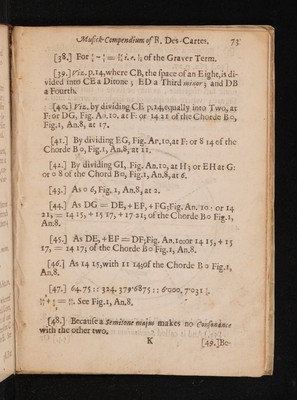 Musick-Compendium of R. Des-Cartes. 73
[38.] For
i.e. of the Graver Term.
[39.] Viz. p.14, where CB, the space of an Eight, is di-
vided into CE a Ditone ; ED a Third minor ; and DB
a Fourth.
[40.] Viz. by dividing CE p.14, equally into Two, at
F: or DG, Fig. An.10. at F: or 14 21 of the Chorde Bo,
Fig.1, An.8, at 17.
[41.] By dividing EG, Fig. An.10, at F: or 8 14 of the
Chorde Bo, Fig.1, An.8, at 11.
[42.] By dividing GI, Fig. An.10, at H; or EH at G:
or 0 8 of the Chord Bo, Fig.1, An.8, at 6.
[43.] As 0 6, Fig. 1, An.8, at 2.
[44.] As DG = DE, + EF, + FG; Fig. An. 10 · or 14
21, = 14 15, + 15 17, + 17 21; of the Chorde Bo Fig.1,
An.8.
[45.] As DE, + EF = DF; Fig. An.10: or 14 15, + 15
17, = 14 17, of the Chorde Bo Fig.1, An.8.
[46.] As 14 15, with 11 14; of the Chorde Bo Fig.1,
An.8.
[47.] 64. 75 :: 324. 379'6875 :: 6'000. 7'031
See Fig.1, An.8.
[48.] Because a Semitone majus makes no Consonance
with the other two.
K [49.] Be-